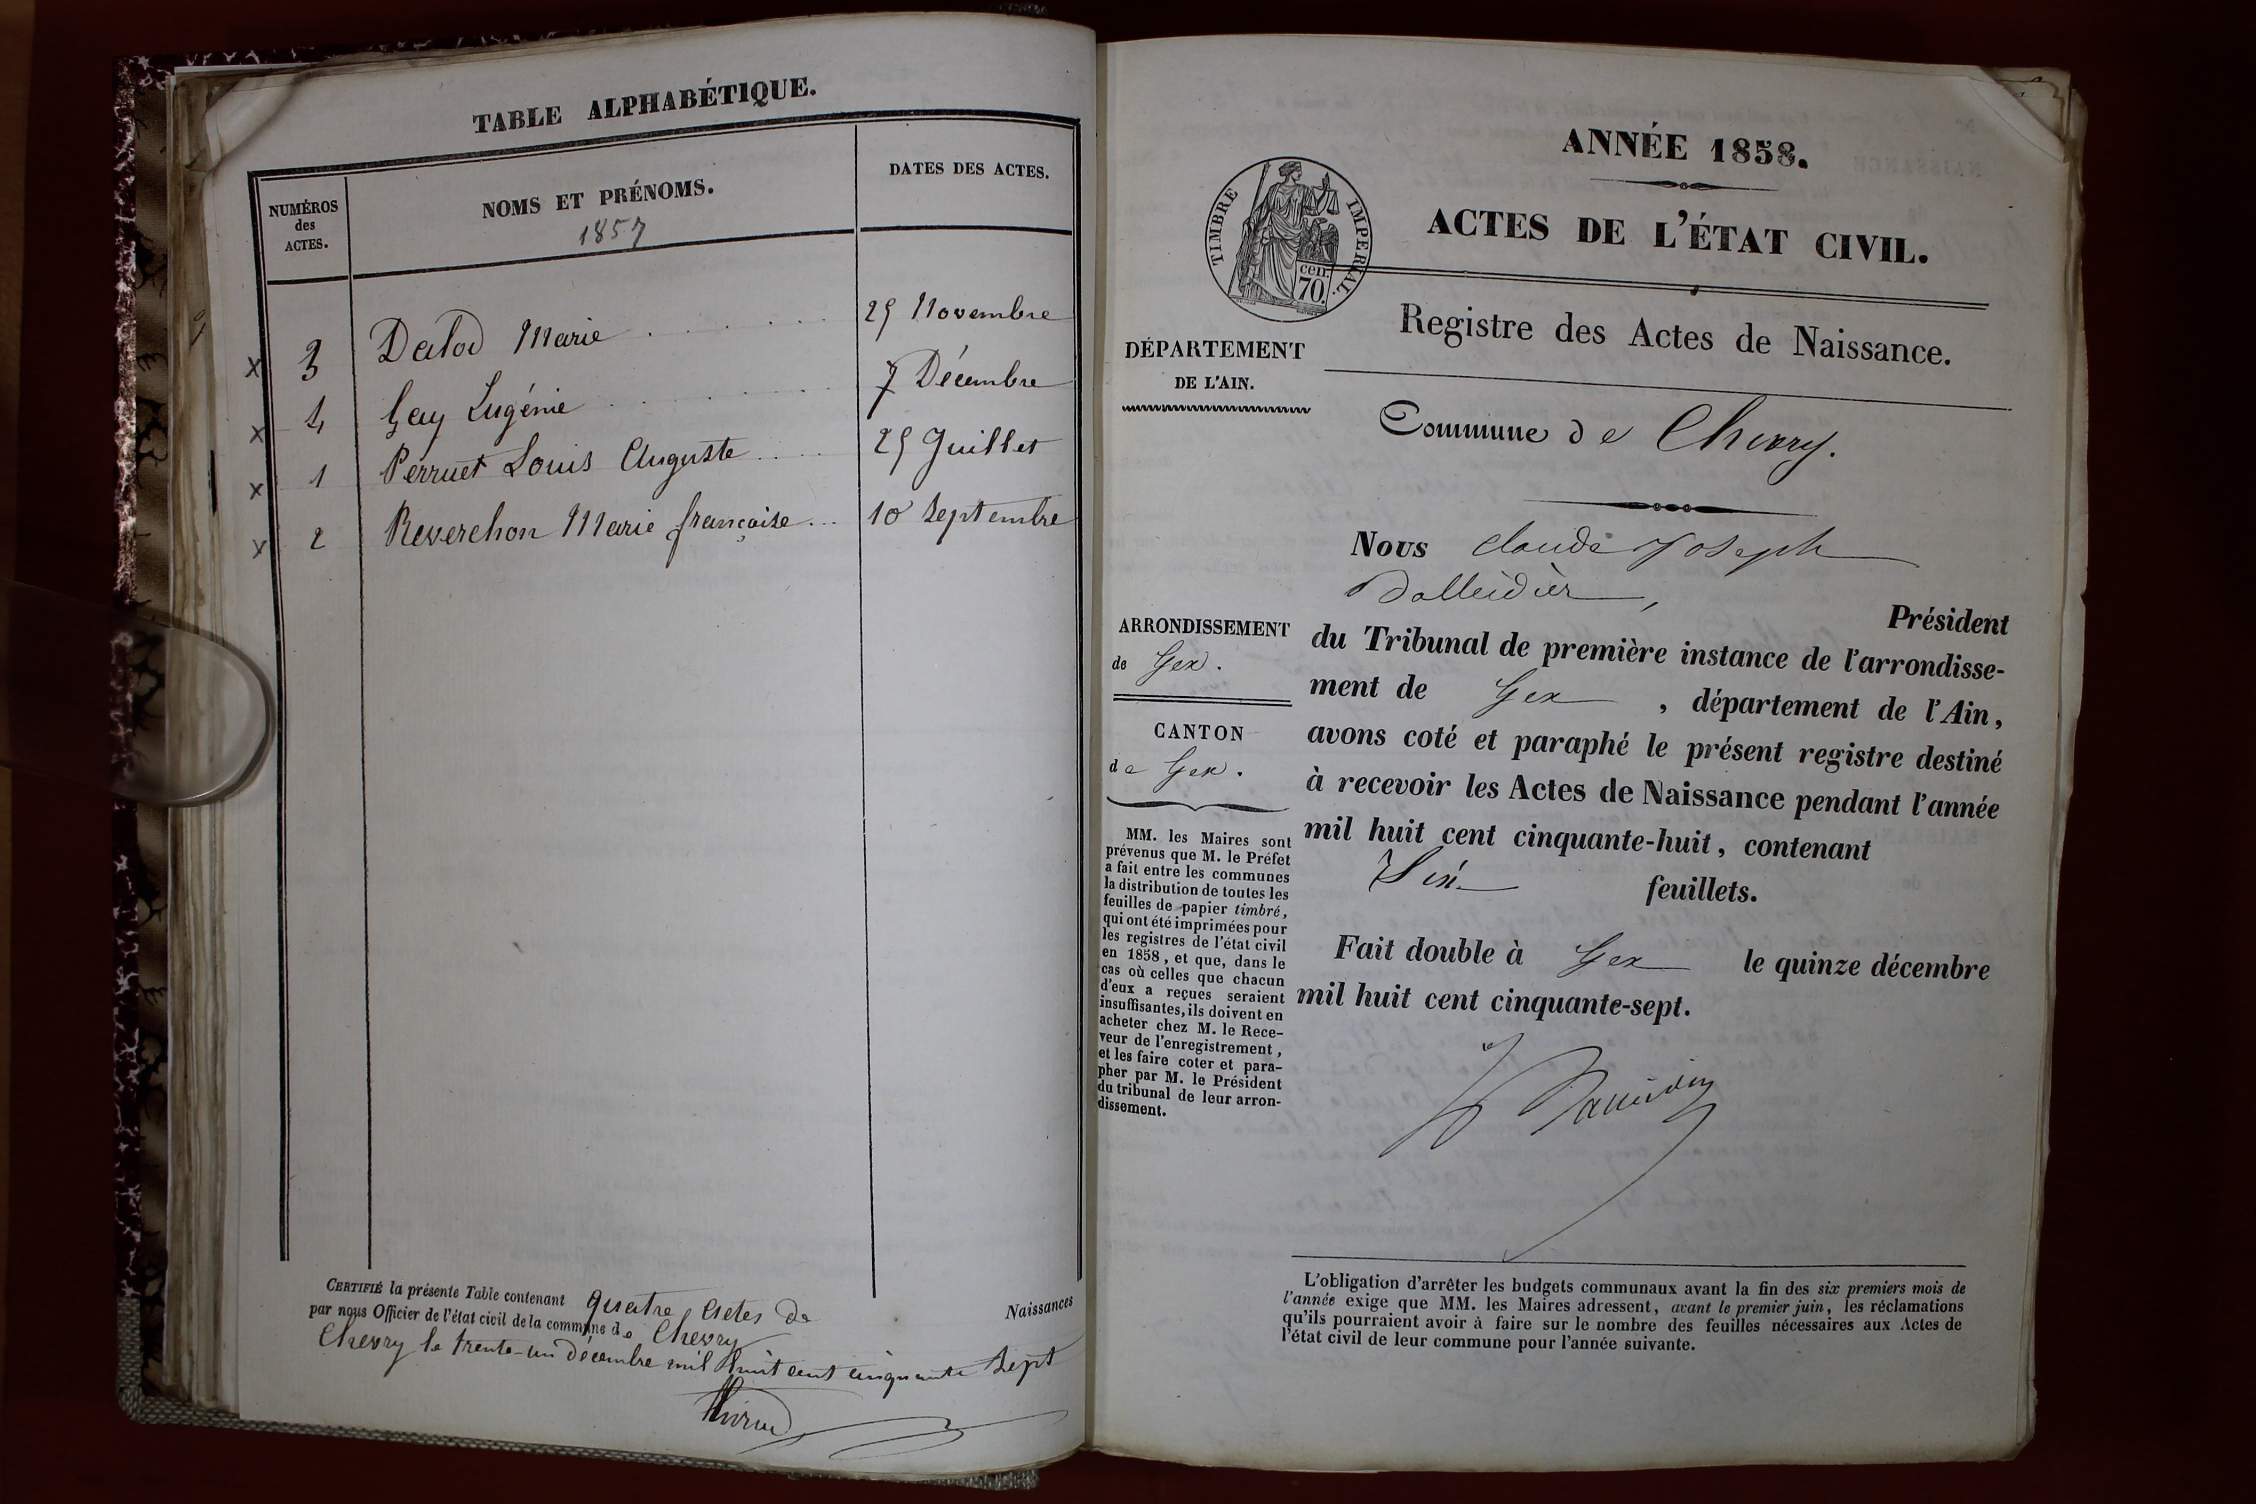 TABLE ALPHABÉTIQUE.
NUMÉROS des ACTES.
NOMS ET PRÉNOMS.
1857
DATES DES ACTES.
x 3 Dalod Marie 25 Novembre
x 4 Gay Eugénie 7 Décembre
x 1 Perruet Louis Auguste 25 Juillet
x 2 Reverchon Marie françoise 10 Septembre
CERTIFIÉ la présente Table contenant quatre actes de Naissances
par nous Officier de l'état civil de la commune de Chevry
Chevry le trente-un décembre mil huit cent cinquante sept
ANNÉE 1858.
ACTES DE L'ÉTAT CIVIL.
TIMBRE IMPERIAL.
cen. 70.
Registre des Actes de Naissance.
DÉPARTEMENT
DE L'AIN.
Commune de Chevry.
Nous Claude Joseph
Président
ARRONDISSEMENT
de Gex.
CANTON
de Gex.
du Tribunal de première instance de l'arrondisse-
ment de Gex, département de l'Ain,
avons coté et paraphé le présent registre destiné
à recevoir les Actes de Naissance pendant l'année
mil huit cent cinquante-huit, contenant
Six feuillets.
Fait double à Gex le quinze décembre
mil huit cent cinquante-sept.
MM. les Maires sont
prévenus que M. le Préfet
a fait entre les communes
la distribution de toutes les
feuilles de papier timbré,
qui ont été imprimées pour
les registres de l'état civil
en 1858, et que, dans le
cas où celles que chacun
d'eux a reçues seraient
insuffisantes, ils doivent en
acheter chez M. le Rece-
veur de l'enregistrement,
et les faire coter et para-
pher par M. le Président
du tribunal de leur arron-
dissement.
L'obligation d'arrêter les budgets communaux avant la fin des six premiers mois de
l'année exige que MM. les Maires adressent, avant le premier juin, les réclamations
qu'ils pourraient avoir à faire sur le nombre des feuilles nécessaires aux Actes de
l'état civil de leur commune pour l'année suivante.